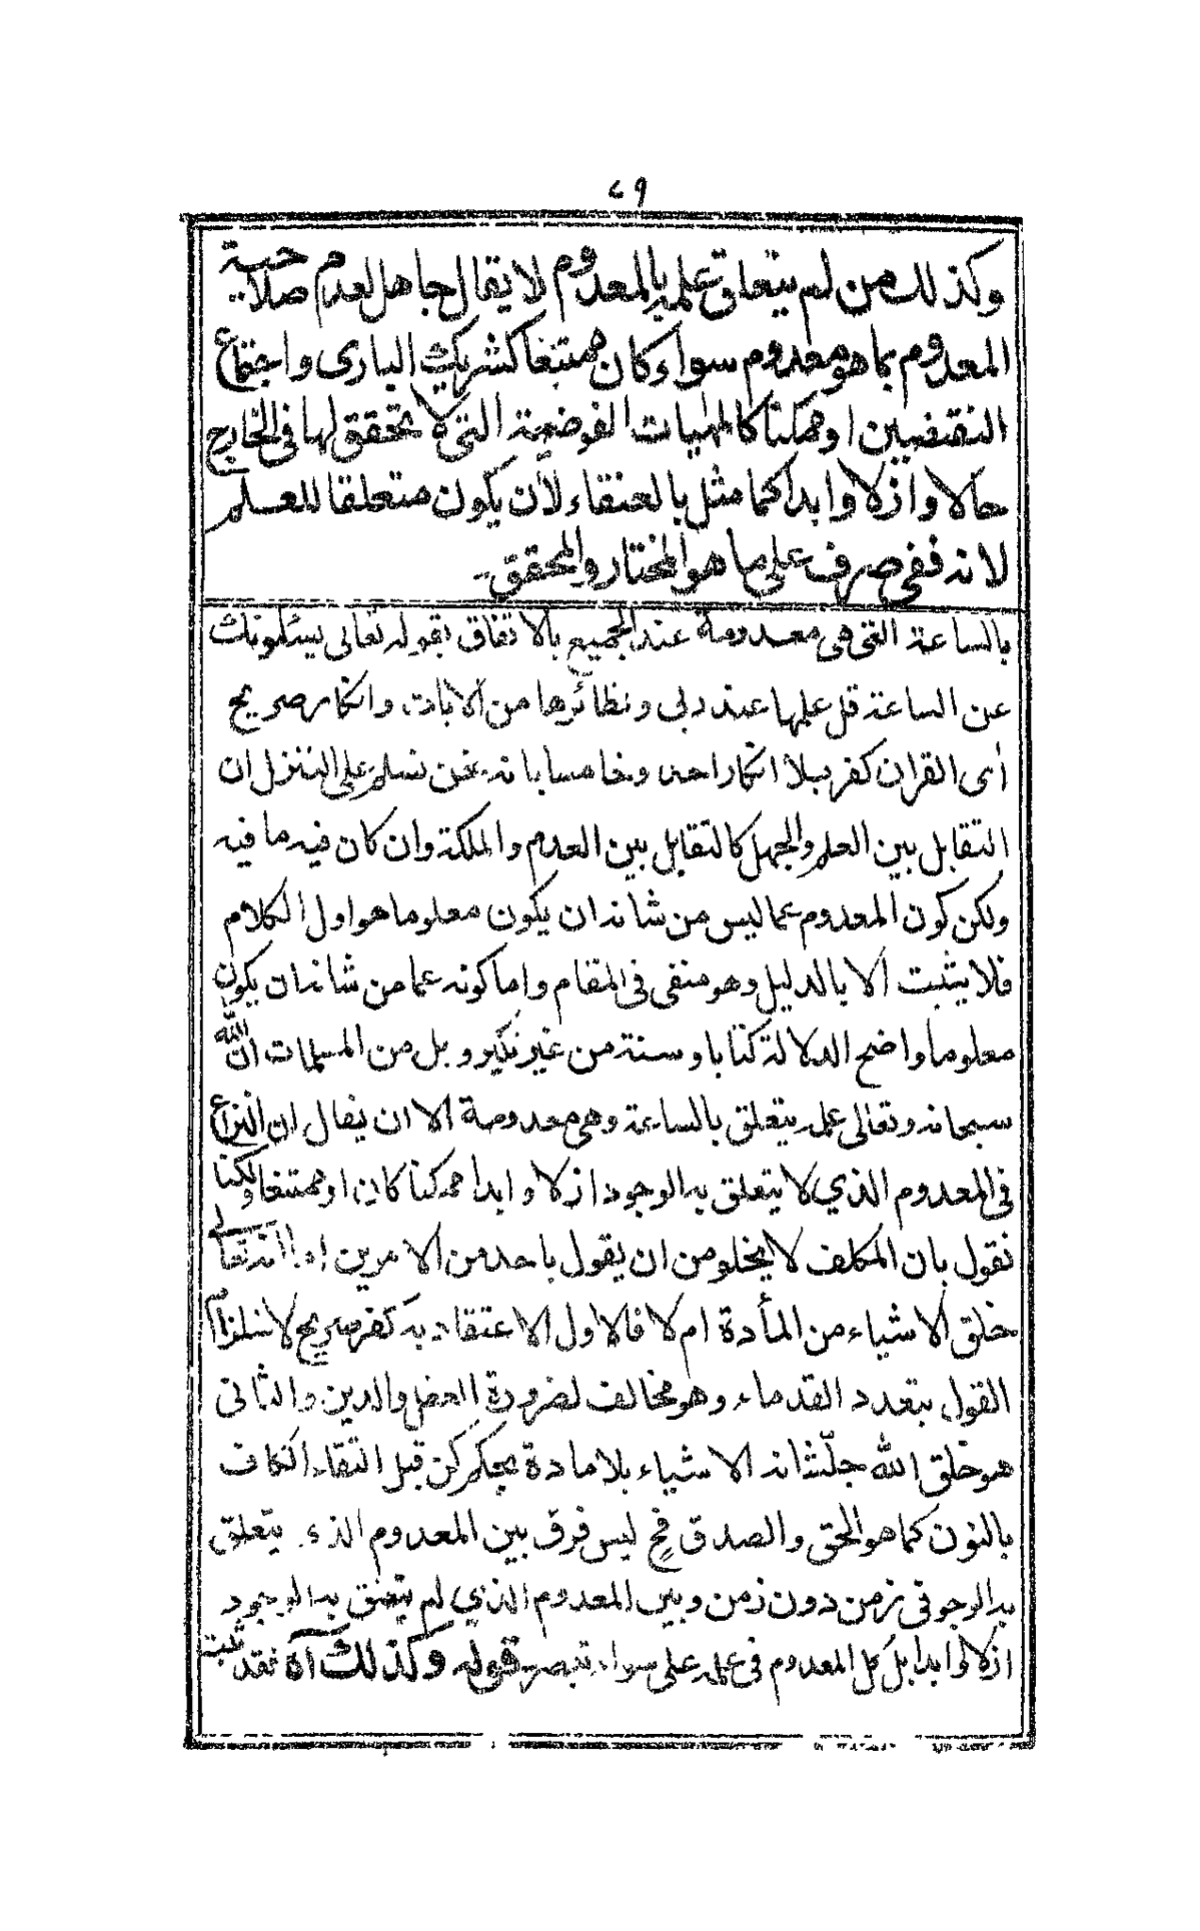 ٢٩
وكذلك من لم يتعلق علمه بالمعدوم لا يقال جاهل لعدم صلاحية
المعدوم بما هو معدوم سواء كان ممتنعا كشريك البارى واجتماع
النقيضين او ممكنا كالمهيات الفرضية التى لا تحقق لها فى الخارج
حالا وازلا وابدا كما مثل بالعنقاء لأن يكون متعلقا للعلم
لانه نفى صرف على ما هو المختار والمحقق
بالساعة التى هى معدومة عند الجميع بالاتفاق بقوله تعالى يسئلونك
عن الساعة قل علمها عند ربى ونظائرها من الايات وانكار صريح
اى القران كفر بلا انكار احد وخامسا بانه نحن نسلم على التنزل ان
التقابل بين العلم والجهل كالتقابل بين العدم والملكة وان كان فيه ما فيه
ولكن كون المعدوم عما ليس من شانه ان يكون معلوما هو اول الكلام
فلا يثبت الا بالدليل وهو منفى فى المقام واما كونه عما من شانه ان يكون
معلوما واضح الدلالة كتابا وسنة من غير نكير وبل من المسلمات ان الله
سبحانه وتعالى علمه يتعلق بالساعة وهى معدومة الا ان يقال ان النزاع
فى المعدوم الذي لا يتعلق به الوجود ازلا وابدا ممكنا كان او ممتنعا ولكنا
نقول بان المكلف لا يخلو من ان يقول باحد من الامرين اما انه تعالى
خلق الاشياء من المادة ام لا فالاول الاعتقاد به كفر صريح لاستلزام
القول بتعدد القدماء وهو مخالف لضرورة العقل والدين والثانى
هو خلق الله جلّ شانه الاشياء بلا مادة بحكم كن قبل التقاء الكاف
بالنون كما هو الحق والصدق فح ليس فرق بين المعدوم الذى يتعلق
به الوجو فى زمن دون زمن وبين المعدوم الذي لم يتعلق به الوجود
ازلا وابدا بل كل المعدوم فى علمه على سواء تبصر قوله وكذلك آه فقد